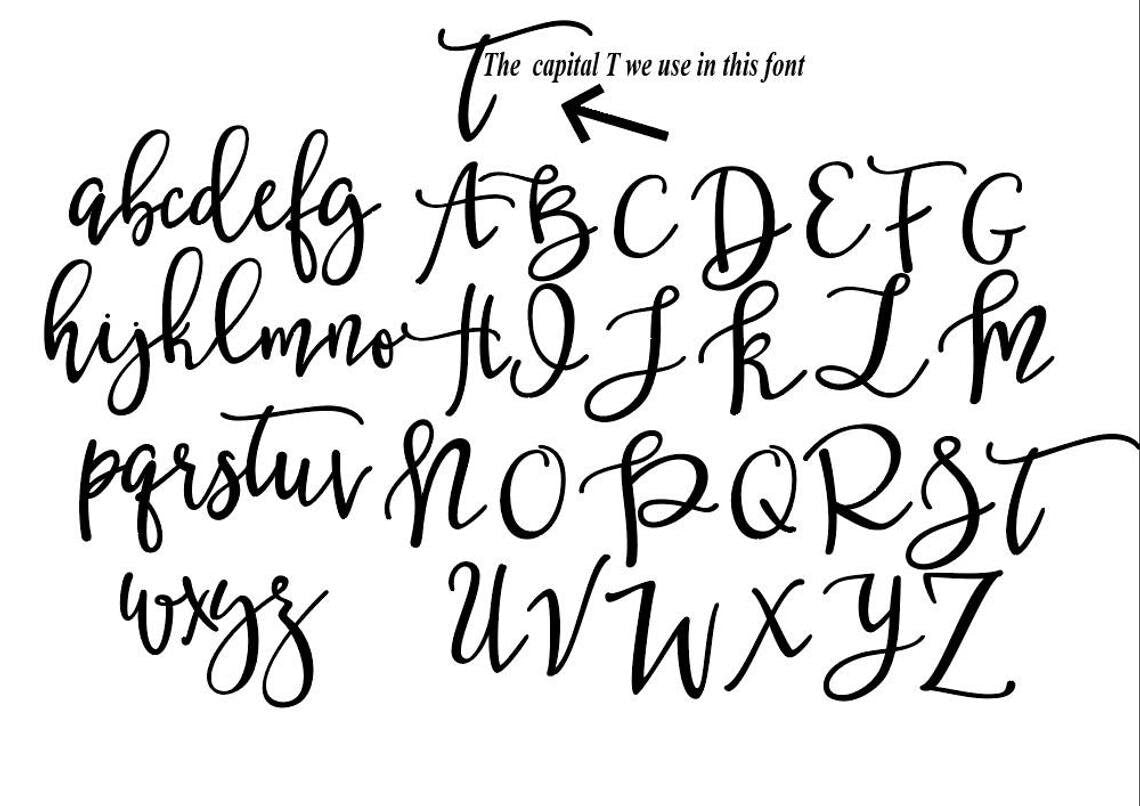 T The capital T we use in this font
abcdefg
hijklmno
pqrstuv
wxyz
ABCDEFG
HIJKLM
NOPQRST
UVWXYZ